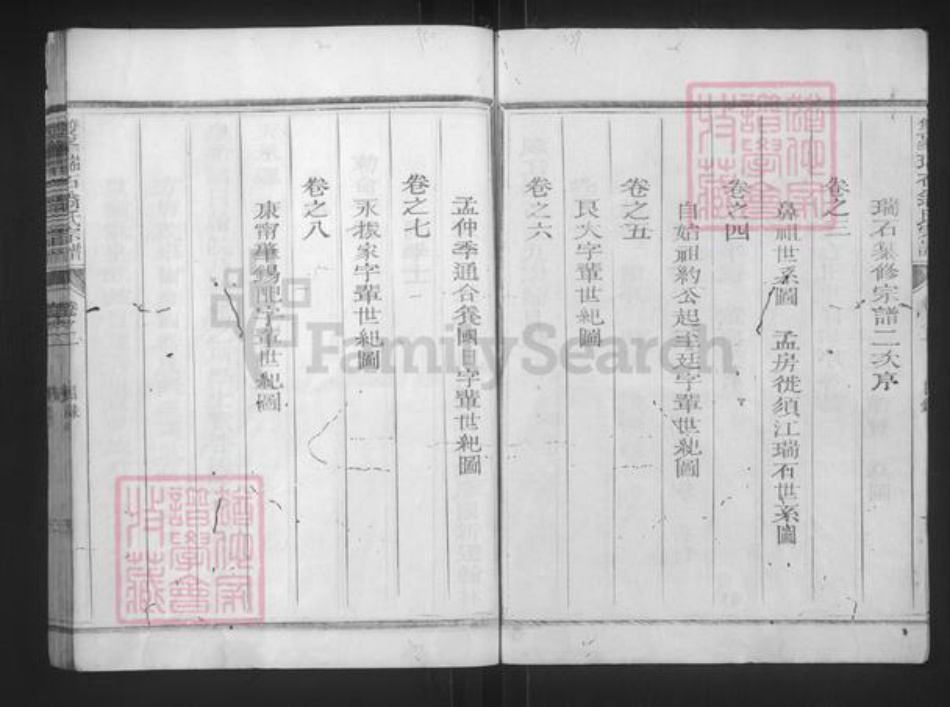 瑞石纂修宗譜二次序
卷之三
鼻祖世系圖 孟房徙須江瑞石世系圖
卷之四
自始祖約公起至廷字輩世紀圖
卷之五
良火字輩世紀圖
卷之六
孟仲季通合養國日字輩世紀圖
卷之七
永振家字輩世紀圖
卷之八
康甯肇錫配字輩世紀圖
瑞石 氏宗譜
卷之一
目錄
譜學會
收藏
FamilySearch